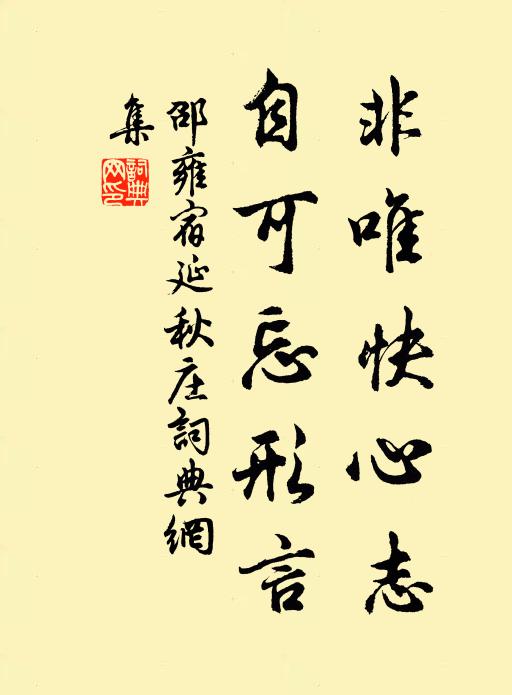 非唯快心志
自可忘形言
邵雍宿延秋庄詞典網
集
詞典網印